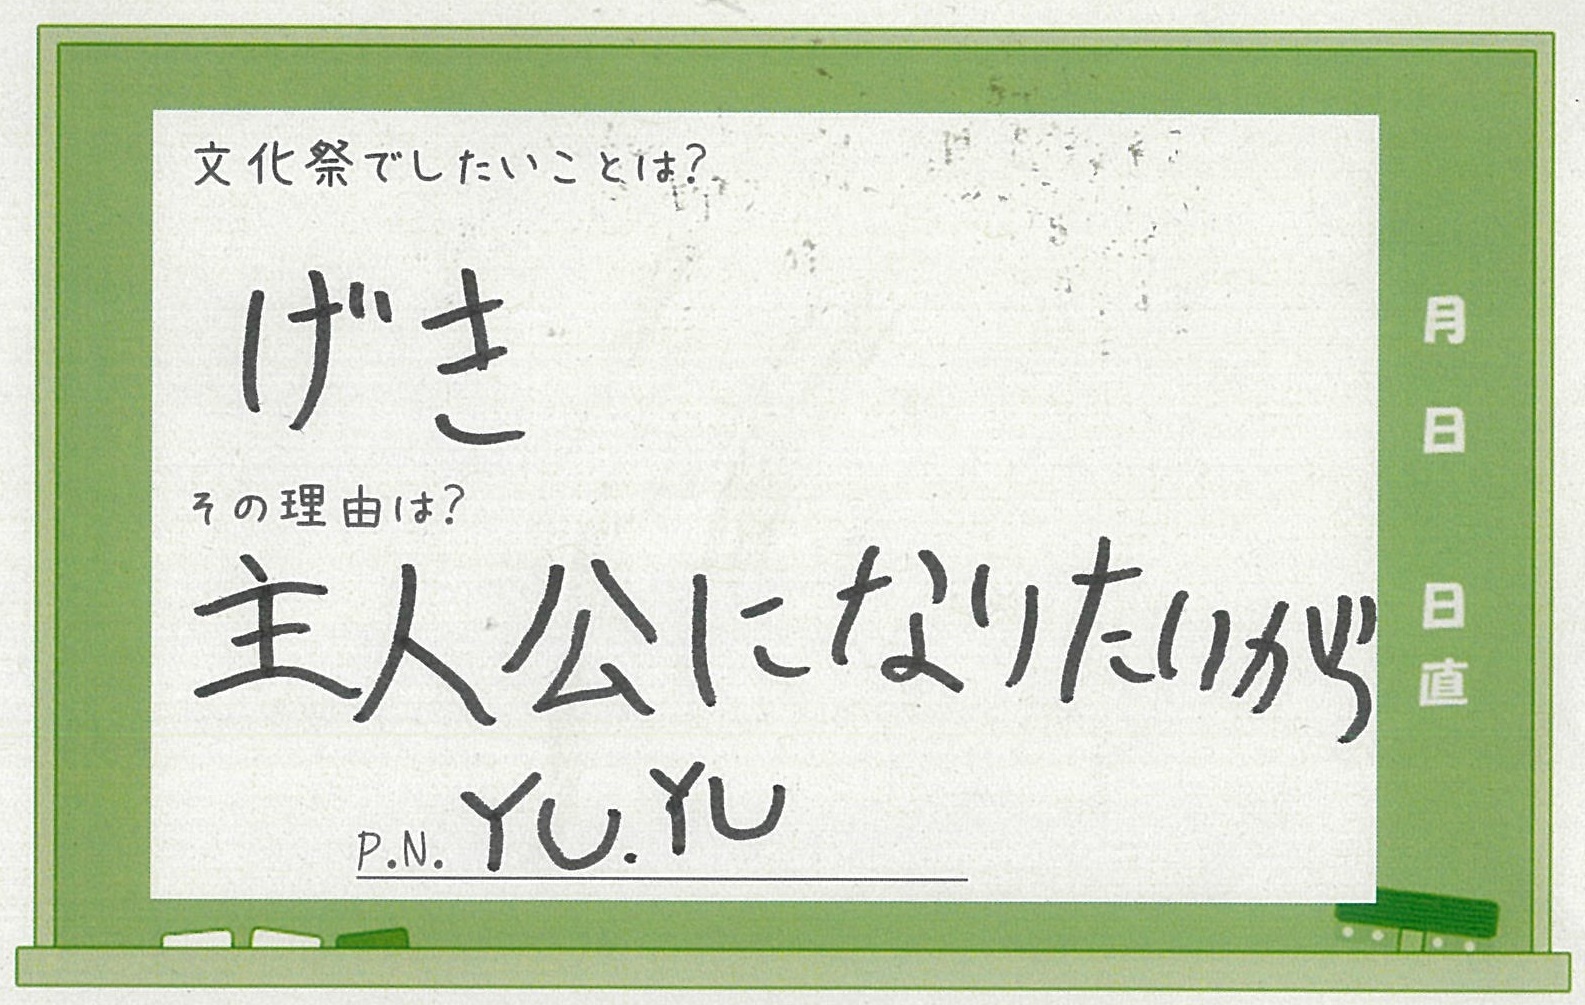 文化祭でしたいことは?
げき
その理由は?
主人公になりたいがら
P.N. YU.YU
月
日
日
直